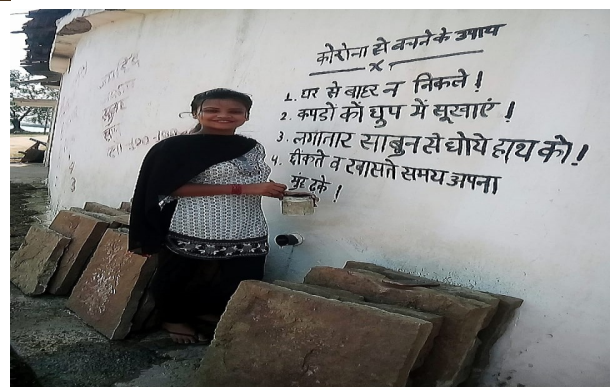 कोरोना से बचने के उपाय
x
1. घर से बाहर न निकले !
2. कपडो कों घुप में सूखाएं !
3. लगातार साबुन से धोये हाथ को!
4. छीकते व खासते समय अपना
मुंह ढके !